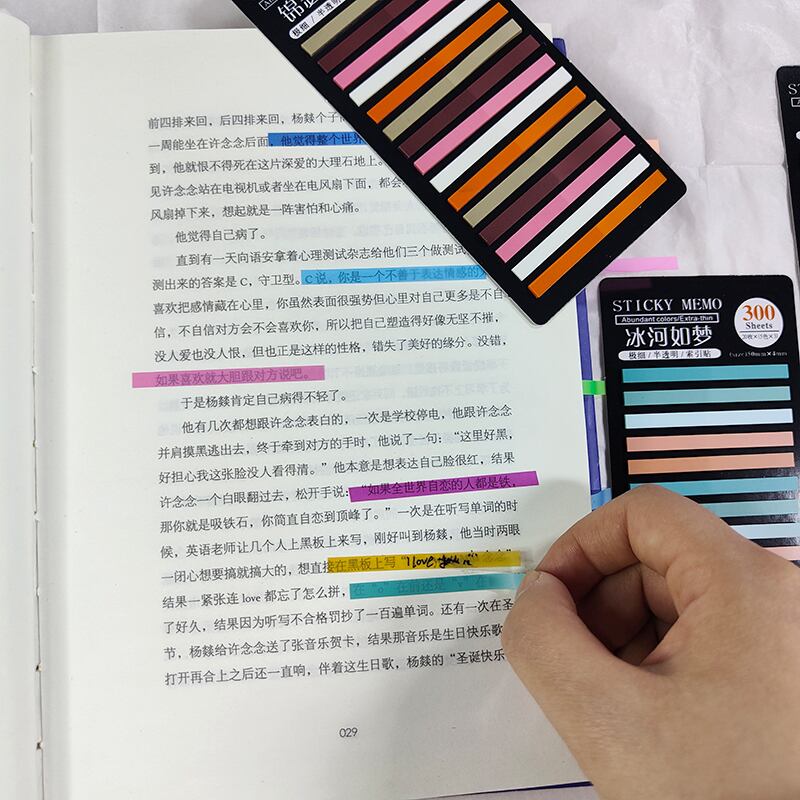 前四排来回，后四排来回，杨燚个子
一周能坐在许念念后面，他觉得整个世界
到，他就恨不得死在这片深爱的大理石地上。
见许念念站在电视机或者坐在电风扇下面，都会
风扇掉下来，想起就是一阵害怕和心痛。
他觉得自己病了。
直到有一天向语安拿着心理测试杂志给他们三个做测试
测出来的答案是 C，守卫型。C 说，你是一个不善于表达情感的
喜欢把感情藏在心里，你虽然表面很强势但心里对自己更多是不自
信，不自信对方会不会喜欢你，所以把自己塑造得好像无坚不摧，
没人爱也没人恨，但也正是这样的性格，错失了美好的缘分。没错，
如果喜欢就大胆跟对方说吧。
于是杨燚肯定自己病得不轻了。
他有几次都想跟许念念表白的，一次是学校停电，他跟许念念
并肩摸黑逃出去，终于牵到对方的手时，他说了一句：“这里好黑，
好担心我这张脸没人看得清。”他本意是想表达自己脸很红，结果
许念念一个白眼翻过去，松开手说：“如果全世界自恋的人都是铁，
那你就是吸铁石，你简直自恋到顶峰了。”一次是在听写单词的时
候，英语老师让几个人上黑板上来写，刚好叫到杨燚，他当时两眼
一闭心想要搞就搞大的，想直接在黑板上写“I love
结果一紧张连 love 都忘了怎么拼，在“o”在前还是“v”在
了好久，结果因为听写不合格罚抄了一百遍单词。还有一次在圣
节，杨燚给许念念送了张音乐贺卡，结果那音乐是生日快乐歌
打开再合上之后还一直响，伴着这生日歌，杨燚的“圣诞快乐
029
极细 / 半透明
STICKY MEMO
Abundant colors/Extra-thin
冰河如梦
极细 / 半透明 / 索引贴
300
Sheets
20枚×15色×1
(size)50mm×4mm